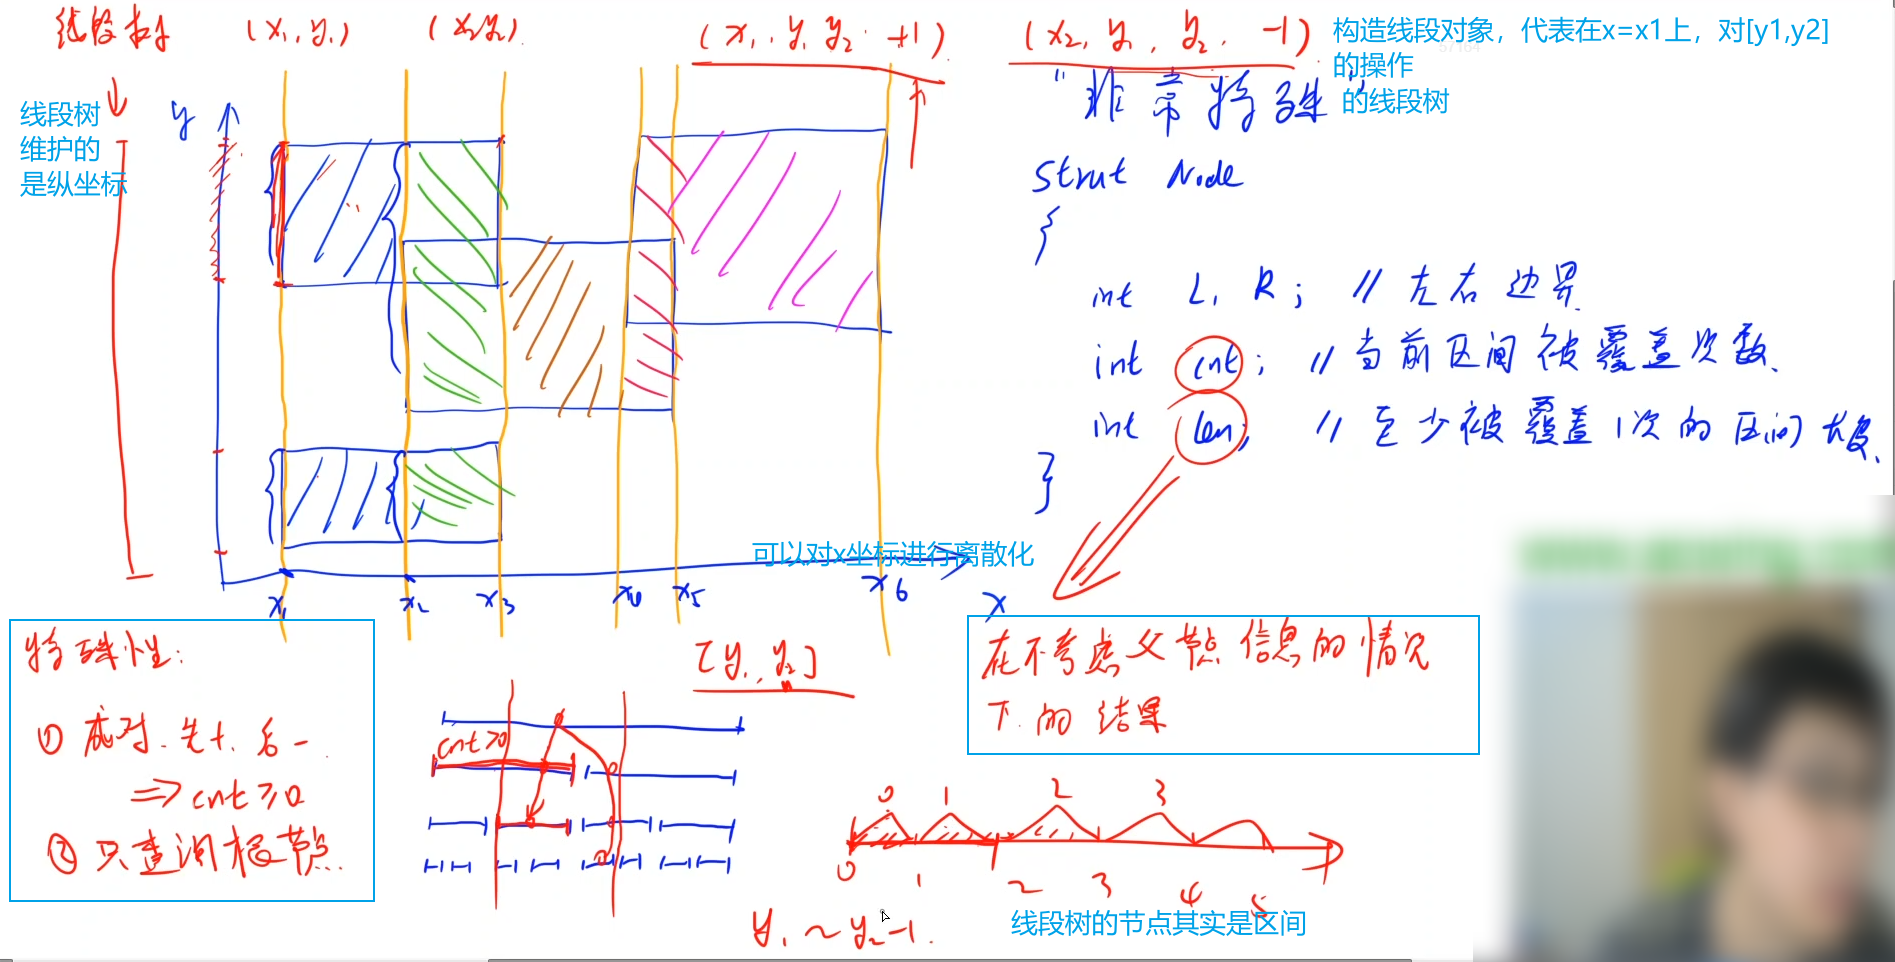 线段树 (x₁, y₁) (x₂ y₂) (x₁, y₁ y₂, +1) (x₂, y₁, y₂, -1)
构造线段对象，代表在x=x1上，对[y1,y2]
的操作
"非常特殊"
的线段树
线段树
维护的
是纵坐标
y
Strut Node
{
int L, R; // 左右边界
int cnt; // 当前区间被覆盖次数.
int len; // 至少被覆盖1次的区间长度.
}
可以对x坐标进行离散化
x₁ x₂ x₃ x₄ x₅ x₆ x
特殊性:
① 成对. 先+. 后-.
=> cnt≥0
② 只查询根节点.
[y₁, y₂]
cnt>0
在不考虑父节点信息的情况
下的结果
0 1 2 3
0 1 2 3 4 5
y₁ ~ y₂-1.
线段树的节点其实是区间